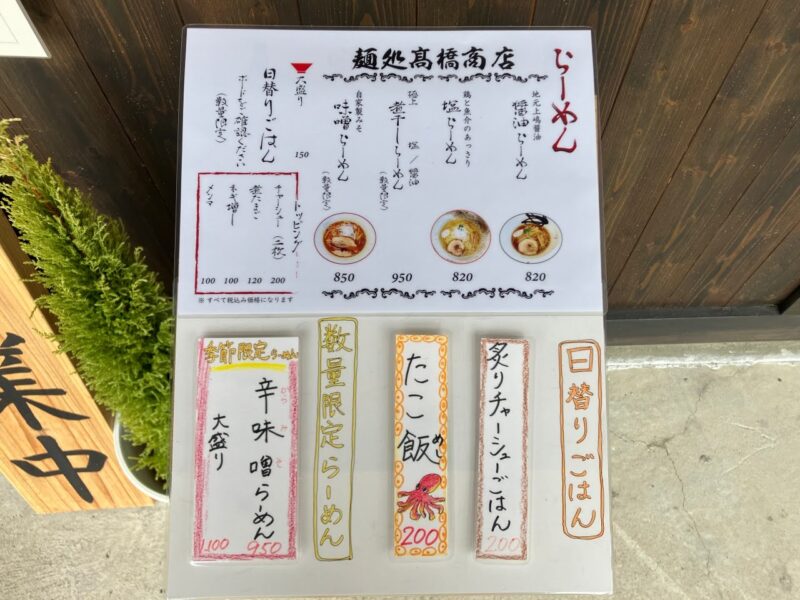 麺処高橋商店
らーめん
地元上嶋醤油
醤油らーめん
820
鶏と魚介のあっさり
塩らーめん
820
極上 塩/醤油
煮干しらーめん
(数量限定)
950
自家製みそ
味噌らーめん
(数量限定)
850
大盛り
150
日替りごはん
ボードをご確認ください
(数量限定)
トッピング
チャーシュー(二枚)
200
煮たまご
120
ネギ増し
100
メンマ
100
※すべて税込み価格になります
日替りごはん
炙りチャーシューごはん
200
たこ飯
めし
200
数量限定らーめん
季節限定らーめん
辛味噌らーめん
からみそ
950
大盛り
1,100
業中